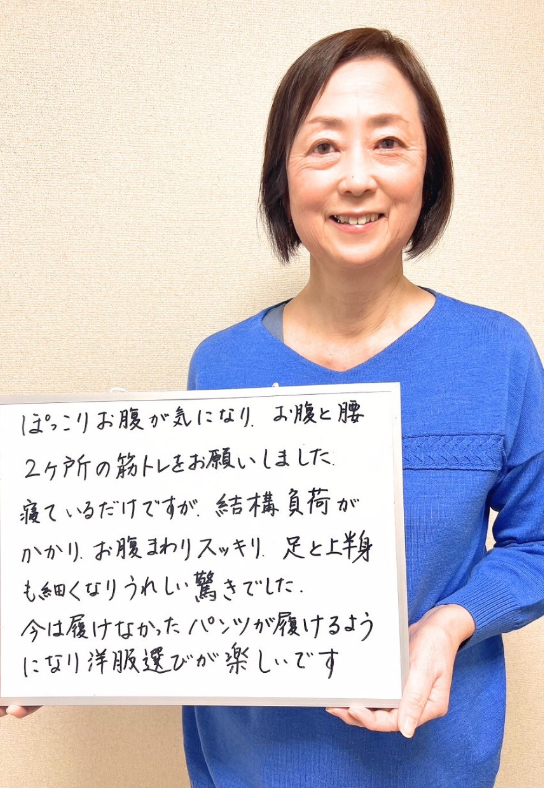 ぽっこりお腹が気になり、お腹と腰
2ヶ所の筋トレをお願いしました.
寝ているだけですが、結構負荷が
かかり、お腹まわりスッキリ、足と上半身
も細くなりうれしい驚きでした.
今は履けなかったパンツが履けるよう
になり洋服選びが楽しいです